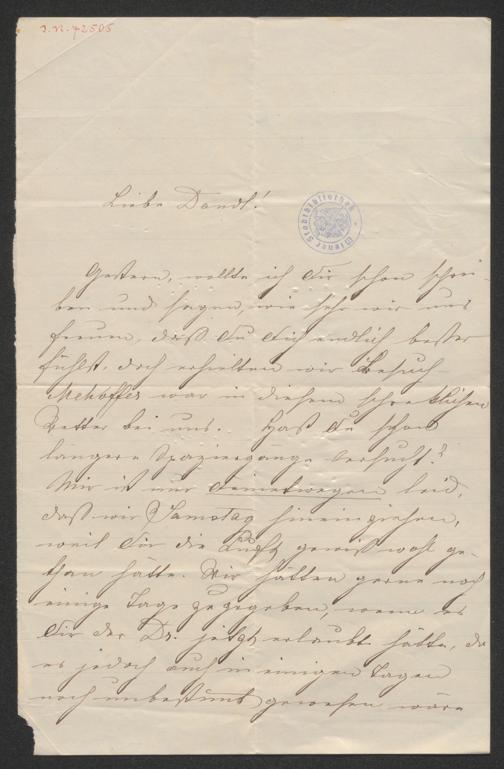 J.N. 72505
Liebe Dandl!
Wiener Stadtbibliothek
Gestern, wollte ich Dir schon schrei-
ben und sagen, wie sehr wir uns
freuen, daß Du Dich endlich besser
fühlst, doch erhielten wir Besuch
war in diesem schrecklichen
Wetter bei uns. Hast Du schon
längere Spaziergänge versucht?
Mir ist nur Deinetwegen leid,
daß wir Samstag hineinziehen,
weil Dir die Luft gewiß wohl ge-
than hätte. Wir hätten gerne noch
einige Tage zugegeben, wenn es
Dir der Dr. jetzt erlaubt hätte, da
es jedoch auch in einigen Tagen
noch unbestimmt gewesen wäre